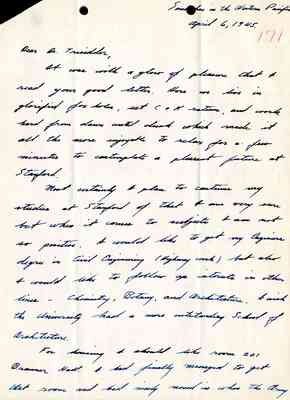 Somewhere in the Western Pacific
April 6, 1945
171
Dear Dr. Trueblood,
It was with a glow of pleasure that I
read your good letter. Here we live in
glorified fox holes, eat C + K rations, and work
hard from dawn until dusk which makes it
all the more enjoyable to relax for a few
minutes to contemplate a pleasant future at
Stanford.
Most certainly I plan to continue my
studies at Stanford of that I am very sure
but when it comes to subjects I am not
so positive. I would like to get my Engineers
degree in Civil Engineering (Highway work) but also
I would like to follow up interests in other
lines - Chemistry, Botany, and Architecture. I wish
the University had a more outstanding School of
Architecture.
For housing I should like room 201
Branner Hall. I had finally managed to get
that room and had just moved in when the Army